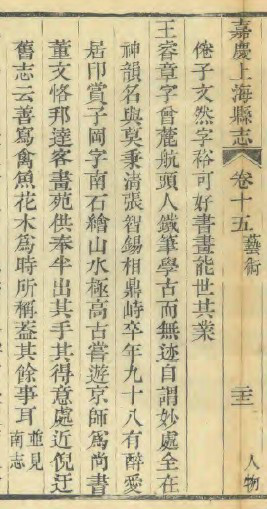 嘉慶上海縣志
卷十五
藝術
三
人物
俺子文然字裕可好書畫能世其業
王睿章字曾麓航頭人鐵筆學古而無迹自謂妙處全在
神韻名與莫秉清張智錫相鼎峙卒年九十八有醉愛
居印賞子岡字南石繪山水極高古嘗遊京師爲尚書
董文恪邦達客畫苑供奉半出其手其得意處近倪迂
舊志云善寫禽魚花木爲時所稱葢其餘事耳
並見
南志